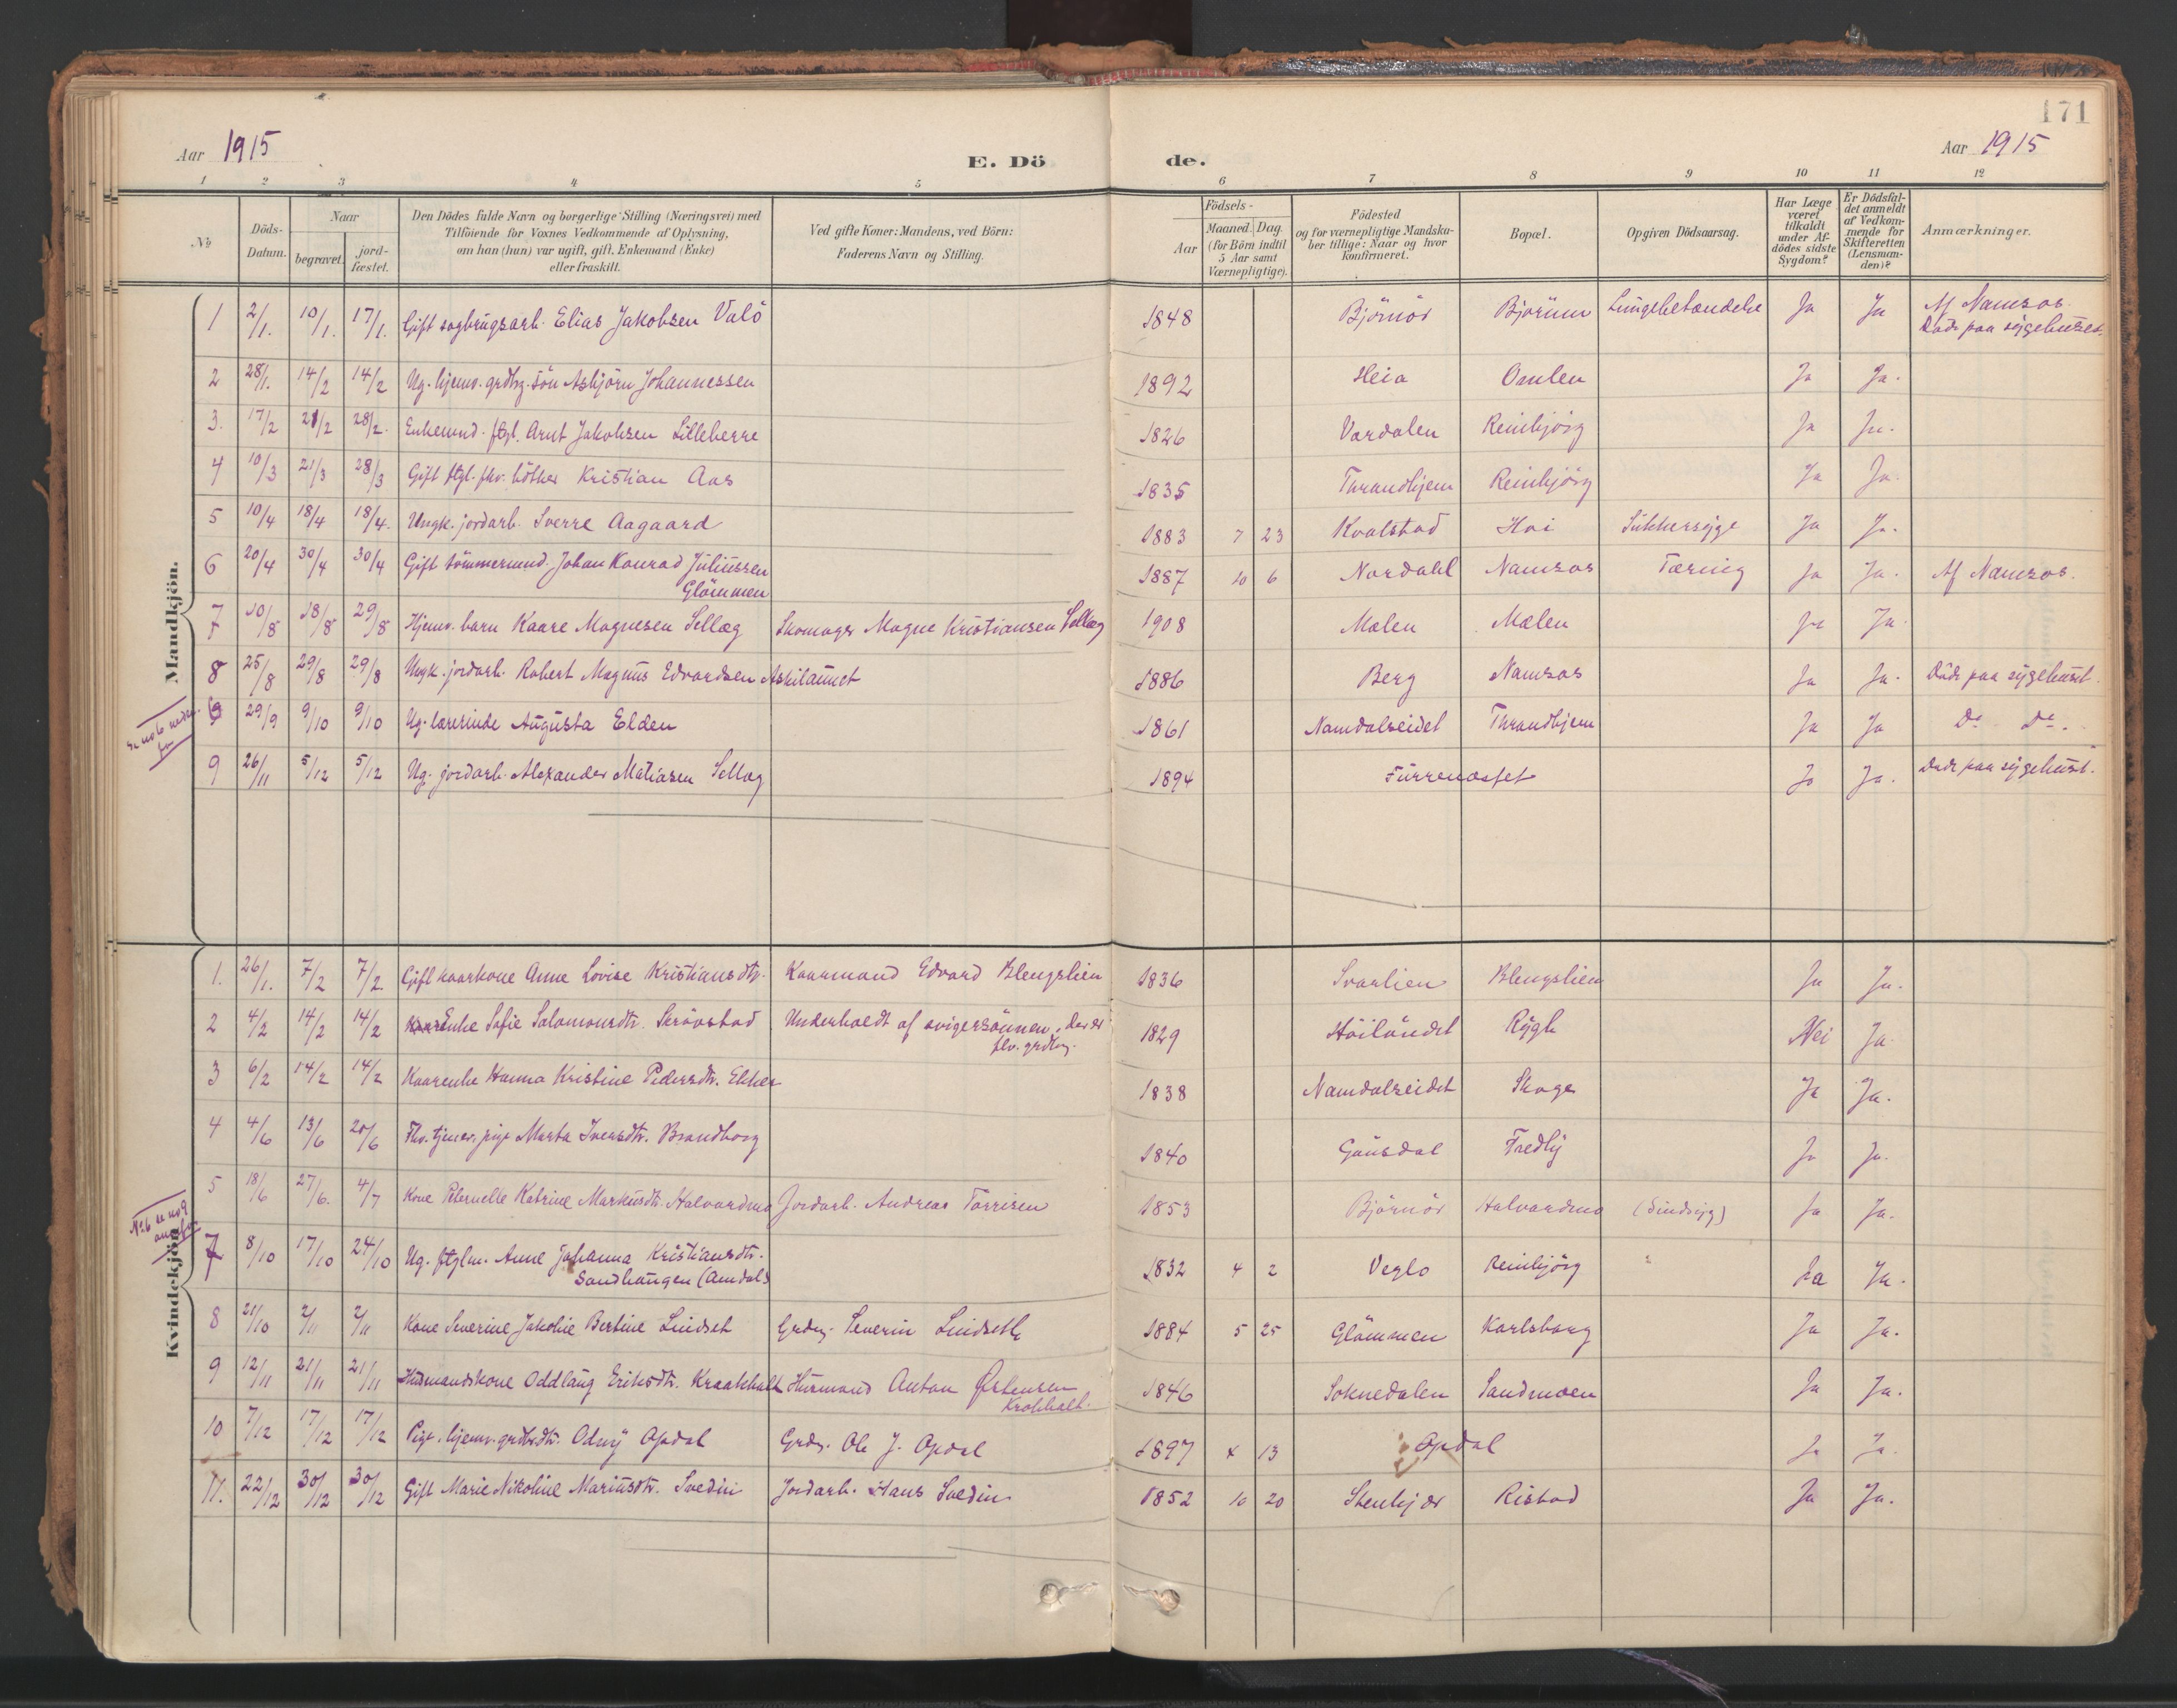 171
Aar 1915
E. Dö de.
Aar 1915
1 2 3 4 5 6 7 8 9 10 11 12
No
Döds-Datum.
Naar
begravet.
jord-fæstet.
Den Dödes fulde Navn og borgerlige Stilling (Næringsvei) med
Tilföiende for Voxnes Vedkommende af Oplysning,
om han (hun) var ugift, gift, Enkemand (Enke)
eller fraskilt.
Ved gifte Koner: Mandens, ved Börn:
Faderens Navn og Stilling.
Födsels-
Aar
Maaned. Dag.
(for Börn indtil
5 Aar samt
Værnepligtige).
Födested
og for værnepligtige Mandska-
ber tillige: Naar og hvor
konfirmeret.
Bopæl.
Opgiven Dödsaarsag.
Har Læge
været
tilkaldt
under Af-
dödes sidste
Sygdom?
Er Dödsfal-
det anmeldt
af Vedkom-
mende for
Skifteretten
(Lensman-
den)?
Anmærkninger.
Mandkjön.
1 2/1. 10/1. 17/1. Gift sagbrugsarb. Elias Jakobsen Valö 1848 Björnör Bjørum Lungebetændelse Ja Ja Af Namsos.
Döde paa sygehuset.
2 28/1. 14/2 14/2 Ug. hjemv. grdbr. sön Asbjörn Johannessen 1892 Heia Omlen Ja Ja.
3. 17/2 21/2 28/2. Enkemnd. ftgl. Arnt Jakobsen Lilleberre 1826 Vardalen Reinbjörg Ja Ja.
4 10/3 21/3 28/3 Gift ftgl. fhv. Kristian Aas 1835 Thrandhjem Reinbjörg Ja Ja.
5 10/4 18/4 18/4. Ungk. jordarb. Sverre Aagaard 1883 7 23 Kvalstad Hoi Sukkersyge Ja Ja.
6 20/4 30/4 30/4 Gift tömmermnd. Johan Konrad Juliussen
Glömmen 1887 10 6 Nordahl Namsos Tæring Ja Ja. Af Namsos.
7 10/8 18/8 29/8 Hjemv. barn Kaare Magnesen Sellæg Skomager Magne Kristiansen Sellæg 1908 Mælen Mælen Ja Ja.
8 25/8 29/8 29/8 Ungk. jordarb. Robert Magnus Edvardsen Askilaunet 1886 Berg Namsos Ja Ja. Döde paa sygehuset.
29/9 9/10 9/10 Ug. lærerinde Augusta Elden 1861 Namdalseidet Thrandhjem Ja Ja Do Do.
9 26/11 5/12 5/12 Ug. jordarb. Alexander Matiasen Sellæg 1894 Furrenæsset Ja Ja. Döde paa sygehuset.
Kvindekjön
1. 26/1. 7/2 7/2. Gift kaarkone Anne Lovise Kristiansdtr. Kaarmand Edvard Blengslien 1836 Svarlien Blengslien Ja Ja.
2 4/2 14/2 14/2 Enke Sofie Salamonsdtr. Skrövstad Underholdt af svigersönnen, der er
flv. grdbr. 1829 Höilandet Rygh Nei Ja.
3 6/2 14/2 14/2 Kaarenke Hanna Kristine Pedersdtr. Elkier 1838 Namdalseidet Skage Ja Ja.
4 4/6 13/6 20/6 Fhv. tjener. pige Marta Iversdtr. Brandborg 1840 Gausdal Fredly Ja Ja.
5 18/6 27/6. 4/7 Kone Peternelle Katrine Markusdtr. Halvardmo Jordarb. Andreas Torrisen 1853 Björnör Halvardmo (Sindssyg) Ja Ja.
No 6 se no 9
ovenfor
7 8/10 17/10 24/10 Ug. ftglm. Anne Johanna Kristiansdtr.
Sandhaugen (Amdal) 1832 4 2 Veglo Reinbjörg Ja Ja.
8 21/10 2/11 2/11 Kone Severine Jakobie Bertine Lindset Grdbr. Severin Lindseth 1884 5 25 Glömmen Karlsborg Ja Ja.
9 12/11 21/11 21/11 Husmandskone Oddlaug Eriksdtr. Kraakhalt Husmand Anton Østensen
Krokhalt. 1846 Soknedalen Sandmoen Ja Ja.
10 7/12 17/12 17/12 Pige. hjemv. grdbrdtr. Odny Opdal Grdbr. Ole J. Opdal 1897 4 13 Opdal Ja Ja.
11. 22/12 30/12 30/12 Gift Marie Nikoline Mariusdtr. Svedin Jordarb. Hans Svedin 1852 10 20 Stenkjær Ristad Ja Ja.